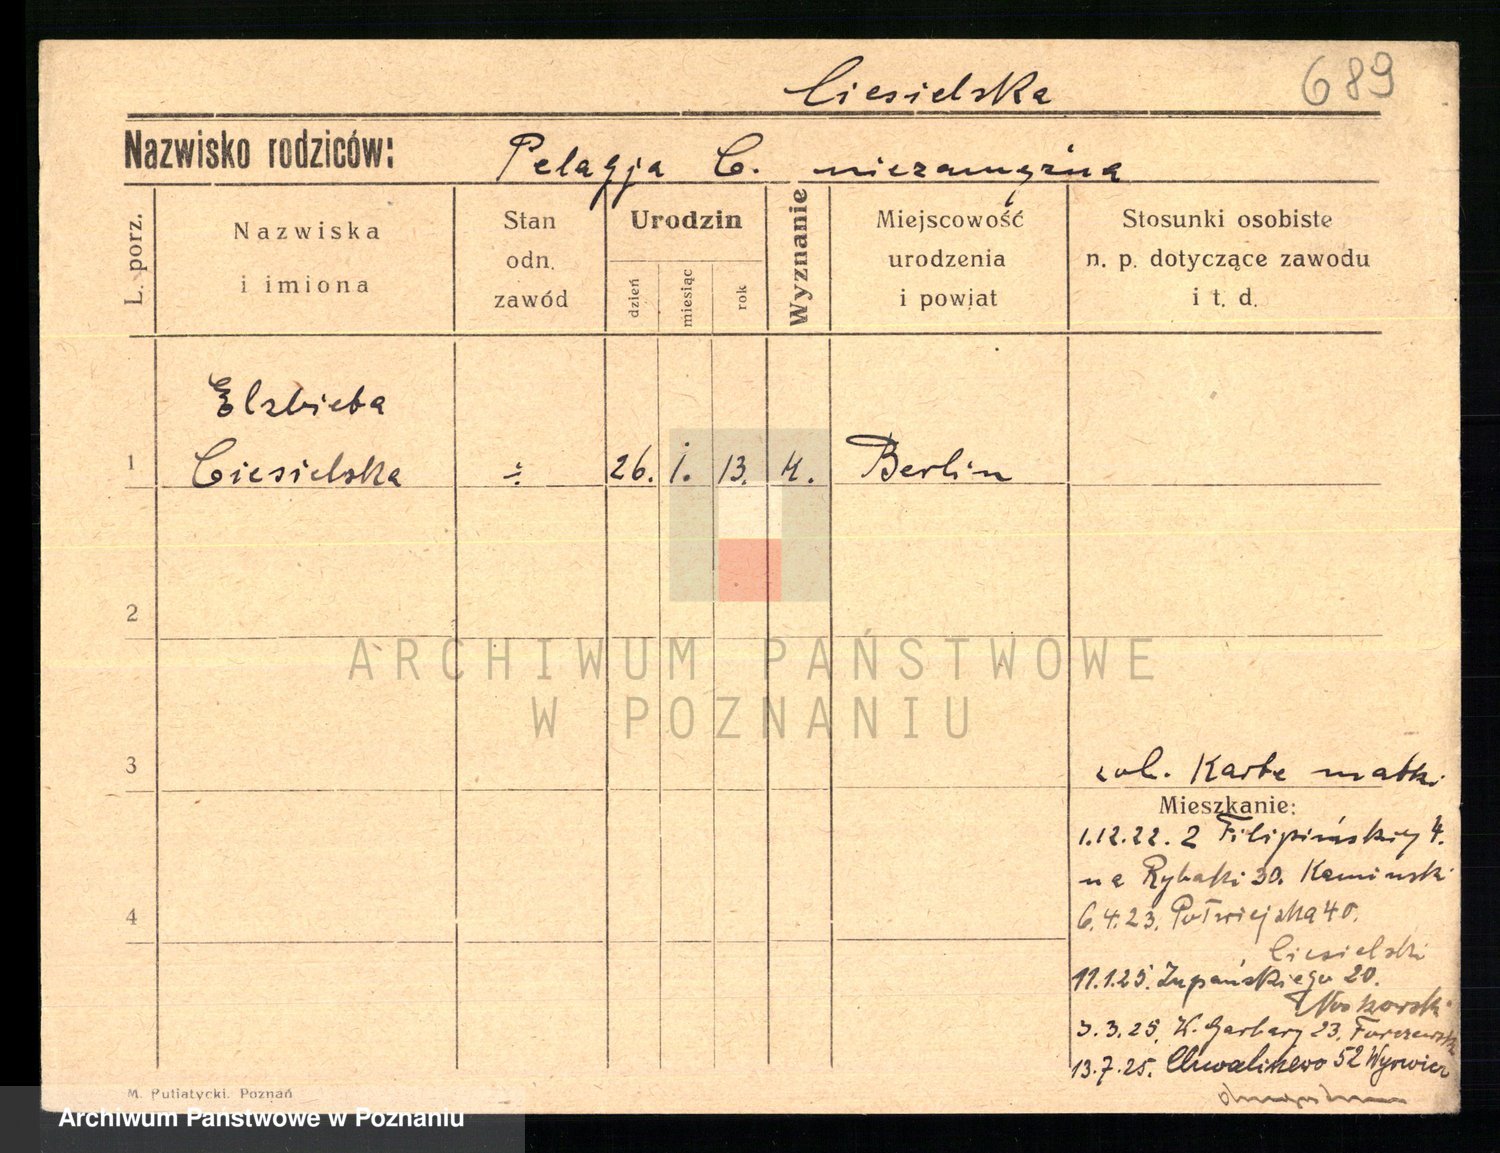 689
Ciesielska
Nazwisko rodziców: Pelagja C. niezamężna
L. porz.
Nazwiska i imiona
Stan odn. zawód
Urodzin
dzień
miesiąc
rok
Wyznanie
Miejscowość urodzenia i powiat
Stosunki osobiste n. p. dotyczące zawodu i t. d.
Elzbieta
1 Ciesielska ÷ 26. 1. 13. K. Berlin
2
ARCHIWUM PAŃSTWOWE
W POZNANIU
3
zob. Kartę matki
Mieszkanie:
1.12.22. z Filipińskiej 4.
na Rybaki 30. Kaminski
4
6.4.23. Półwiejska 40.
Ciesielski
11.1.25. Zupańskiego 20.
3.3.25. W. Garbary 23.
13.7.25. Chwaliszewo 52
M. Putiatycki. Poznań
Archiwum Państwowe w Poznaniu